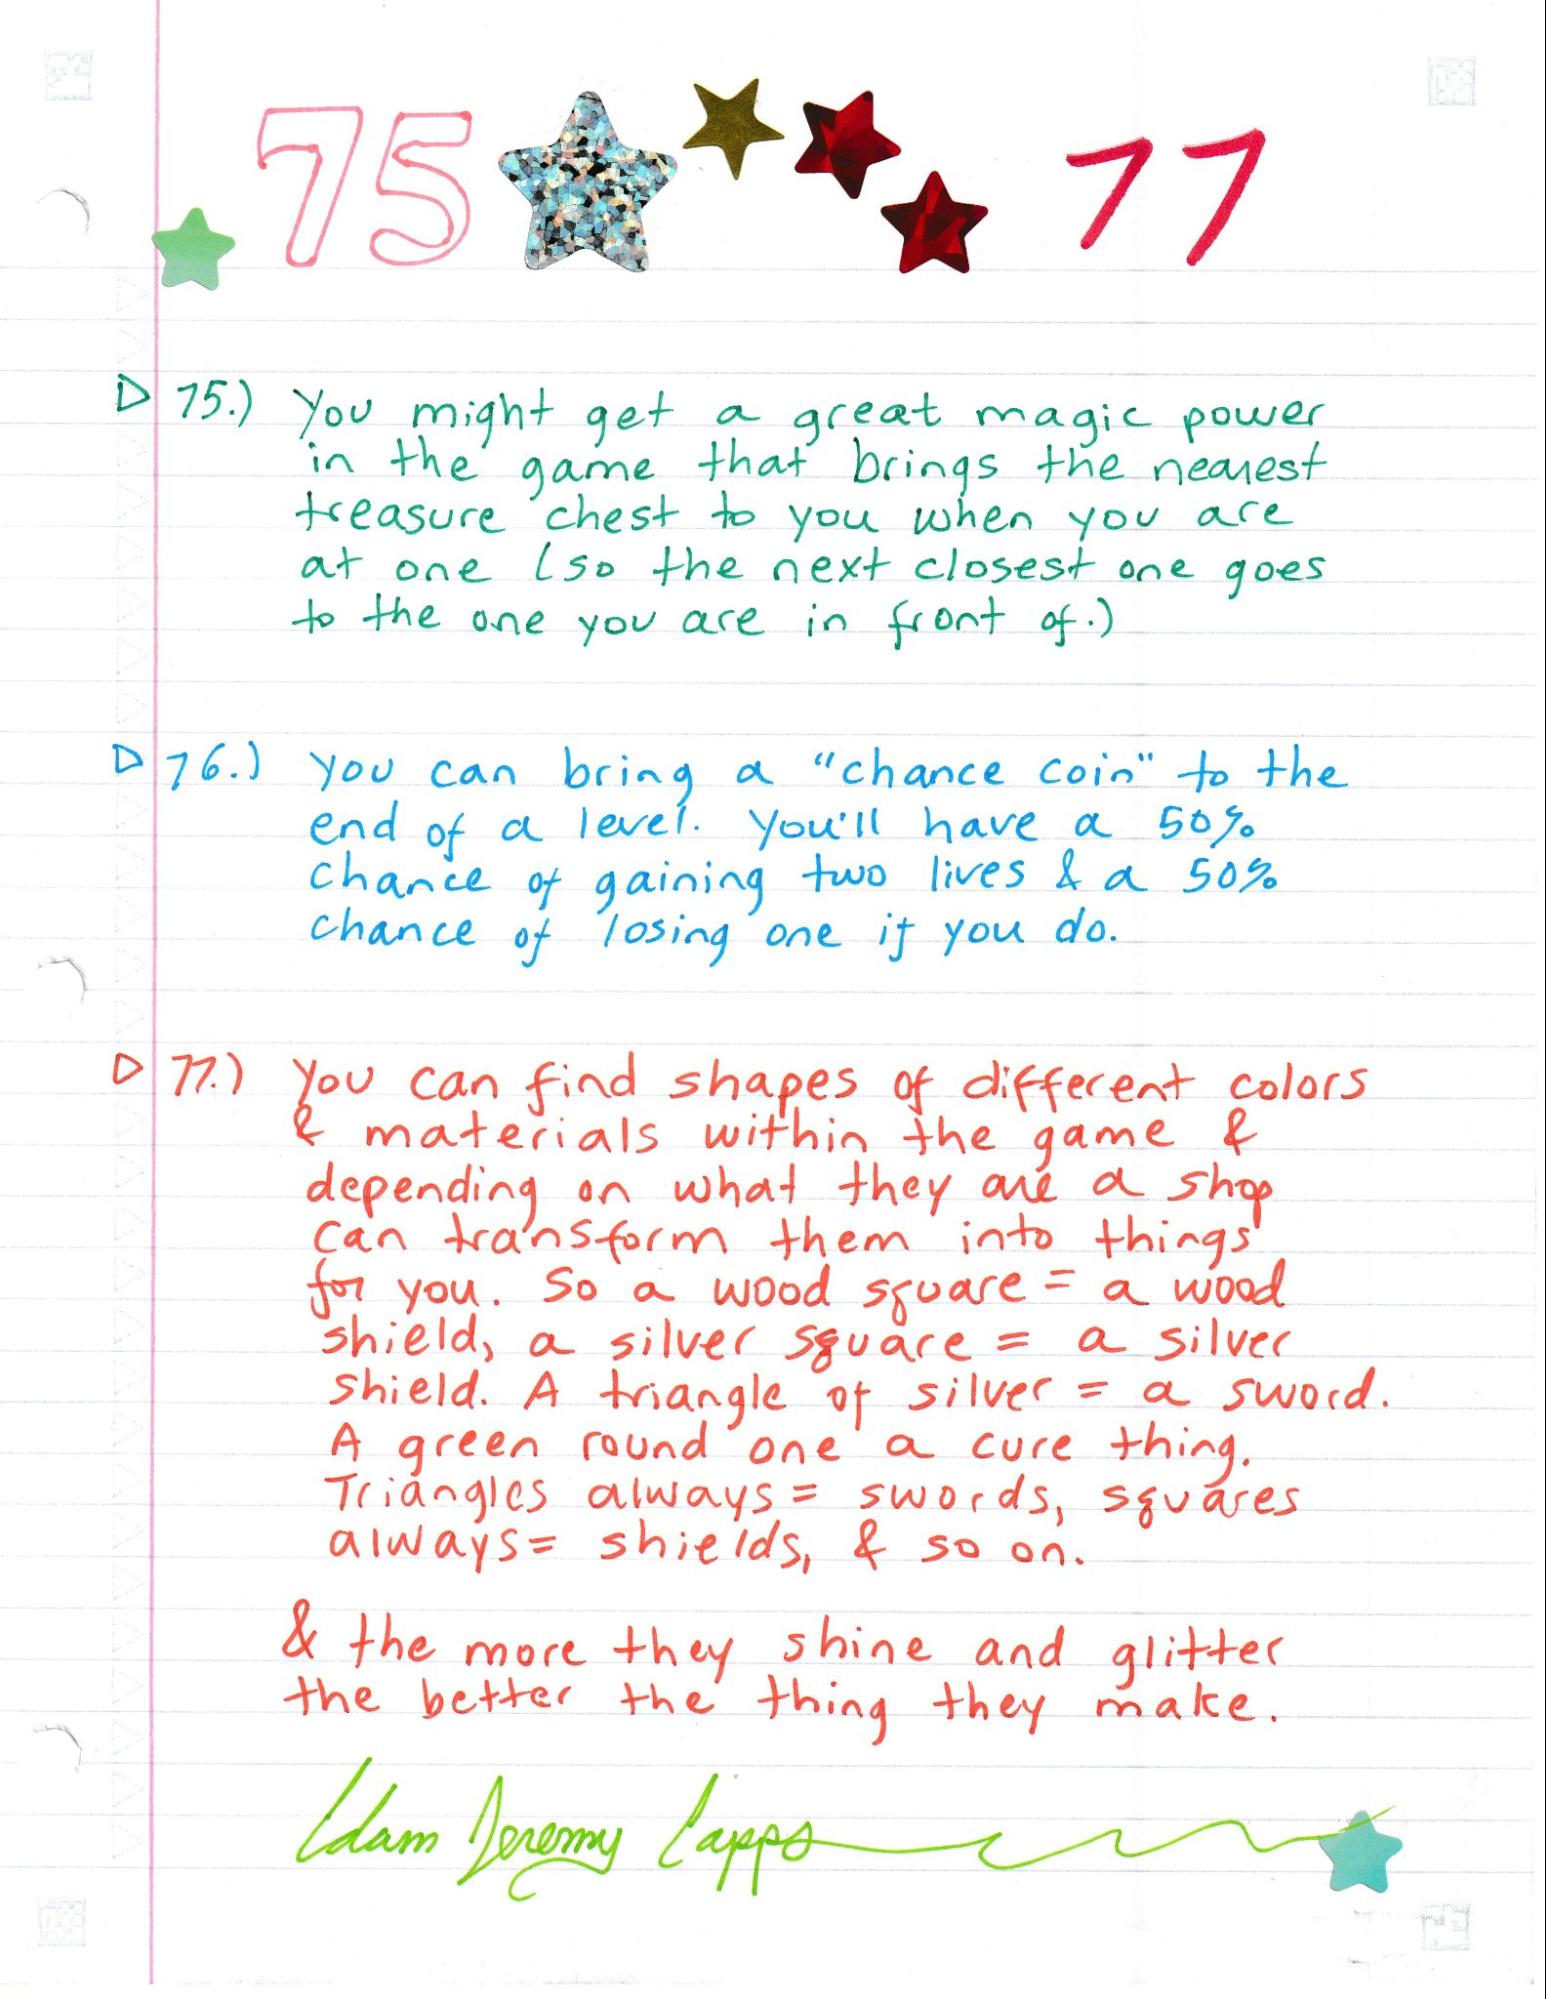 75 77
▷ 75.) You might get a great magic power
in the game that brings the nearest
treasure chest to you when you are
at one (so the next closest one goes
to the one you are in front of.)
▷ 76.) You can bring a "chance coin" to the
end of a level. You'll have a 50%
chance of gaining two lives & a 50%
chance of losing one if you do.
▷ 77.) You can find shapes of different colors
& materials within the game &
depending on what they are a shop
can transform them into things
for you. So a wood square = a wood
shield, a silver square = a silver
shield. A triangle of silver = a sword.
A green round one a cure thing.
Triangles always = swords, squares
always = shields, & so on.
& the more they shine and glitter
the better the thing they make.
Adam Jeremy Capps